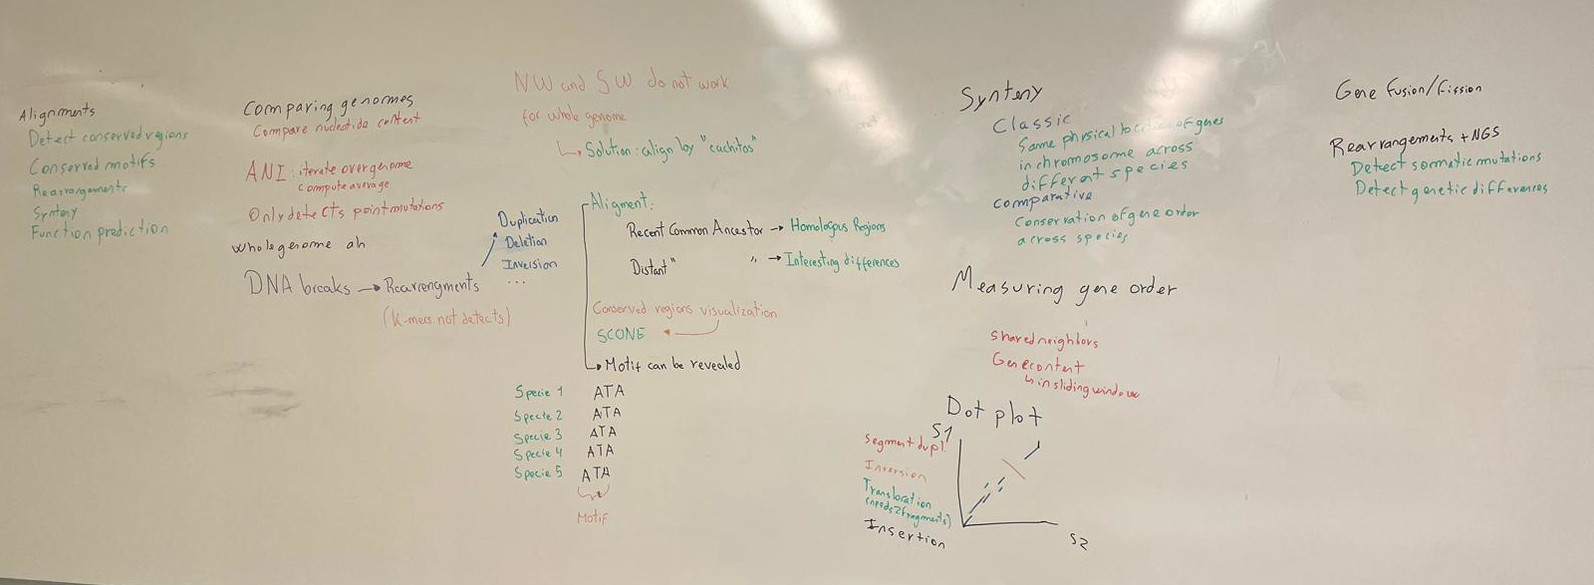 Alignments
Detect conserved regions
Conserved motifs
Rearrangements
Synteny
Function prediction
Comparing genomes
Compare nucleotide content
ANI: iterate over genome
compute average
Only detects point mutations
Whole genome
DNA breaks → Rearrengments
(K-mers not detects)
Duplication
Deletion
Inversion
...
NW and SW do not work
for whole genome
↳ Solution: align by "cachitos"
Aligment:
Recent Common Ancestor → Homologus Regions
Distant " " → Interesting differences
Conserved regions visualization
SCONE ←
→ Motif can be revealed
Specie 1 ATA
Specie 2 ATA
Specie 3 ATA
Specie 4 ATA
Specie 5 ATA
Motif
Synteny
Classic
Same physical location of genes
in chromosome across
different species
comparative
Conservation of gene order
across species
Measuring gene order
Shared neighbors
Gene content
↳ in sliding window
Dot plot
S1
Segment dupl.
Inversion
Translocation
(needs 2 fragments)
Insertion
S2
Gene fusion/fission
Rearrangements + NGS
Detect somatic mutations
Detect genetic differences